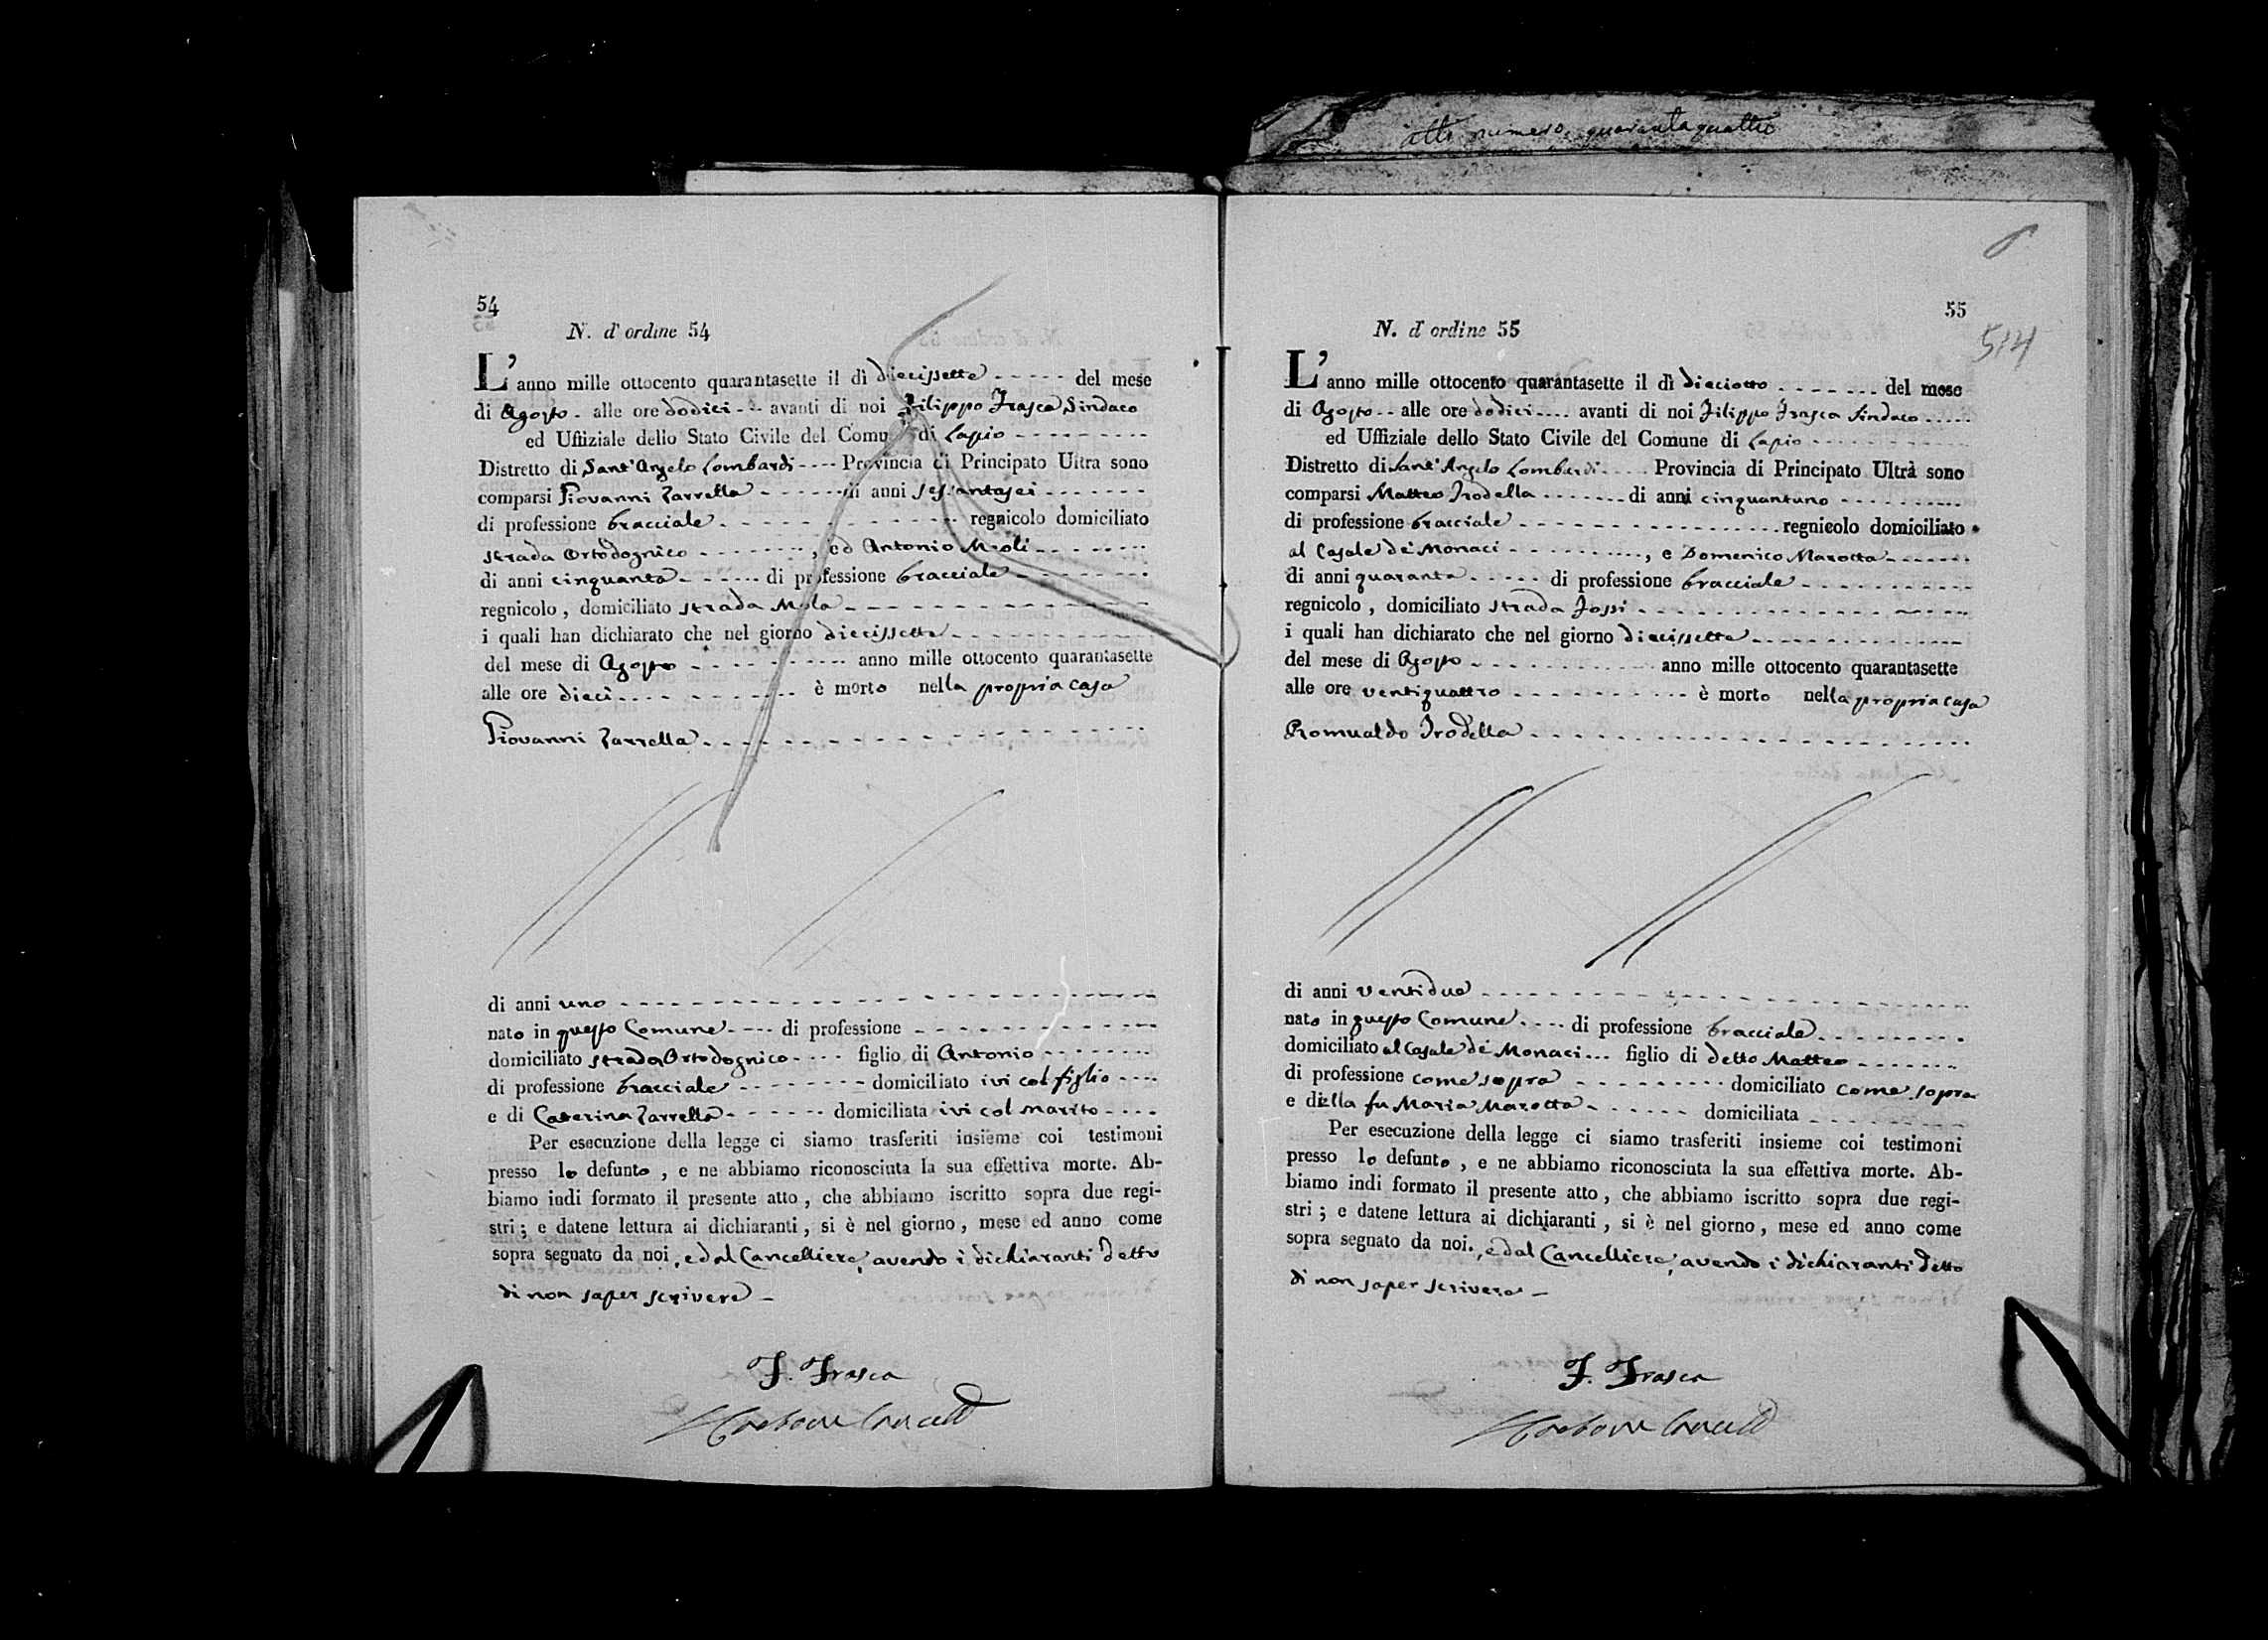 atto numero quarantaquattro
54
N. d'ordine 54
L'anno mille ottocento quarantasette il dì diecissette del mese
di Agosto alle ore dodici avanti di noi Filippo Frasca Sindaco
ed Uffiziale dello Stato Civile del Comu di Lapio
Distretto di Sant'Angelo Lombardi Provincia di Principato Ultra sono
comparsi Giovanni Zarrella di anni sessantasei
di professione bracciale regnicolo domiciliato
strada Ortodognico, ed Antonio
di anni cinquanta di professione bracciale
regnicolo, domiciliato strada
i quali han dichiarato che nel giorno diecissette
del mese di Agosto anno mille ottocento quarantasette
alle ore dieci è morto nella propria casa
Giovanni Zarrella
di anni uno
nato in questo Comune di professione
domiciliato strada Ortodognico figlio di Antonio
di professione bracciale domiciliato ivi col figlio
e di Caterina Zarrella domiciliata ivi col marito
Per esecuzione della legge ci siamo trasferiti insieme coi testimoni
presso lo defunto, e ne abbiamo riconosciuta la sua effettiva morte. Ab-
biamo indi formato il presente atto, che abbiamo iscritto sopra due regi-
stri; e datene lettura ai dichiaranti, si è nel giorno, mese ed anno come
sopra segnato da noi, e dal Cancelliere, avendo i dichiaranti detto
di non saper scrivere
F. Frasca
55
514
N. d'ordine 55
L'anno mille ottocento quarantasette il dì dieciotto del mese
di Agosto alle ore dodici avanti di noi Filippo Frasca Sindaco
ed Uffiziale dello Stato Civile del Comune di Lapio
Distretto di Sant'Angelo Lombardi Provincia di Principato Ultra sono
comparsi Matteo Trodella di anni cinquantuno
di professione bracciale regnicolo domiciliato
al Casale de' Monaci, e Domenico Marotta
di anni quaranta di professione bracciale
regnicolo, domiciliato strada Fossi
i quali han dichiarato che nel giorno diecissette
del mese di Agosto anno mille ottocento quarantasette
alle ore ventiquattro è morto nella propria casa
Romualdo Trodella
di anni ventidue
nato in questo Comune di professione bracciale
domiciliato al Casale de' Monaci figlio di detto Matteo
di professione come sopra domiciliato come sopra
e della fu Maria Marotta domiciliata
Per esecuzione della legge ci siamo trasferiti insieme coi testimoni
presso lo defunto, e ne abbiamo riconosciuta la sua effettiva morte. Ab-
biamo indi formato il presente atto, che abbiamo iscritto sopra due regi-
stri; e datene lettura ai dichiaranti, si è nel giorno, mese ed anno come
sopra segnato da noi, e dal Cancelliere, avendo i dichiaranti detto
di non saper scrivere
F. Frasca